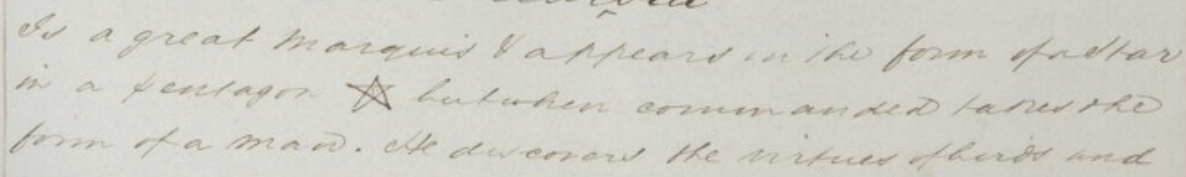 Is a great Marquis & appears in the form of a Star
in a pentagon but when commanded takes the
form of a man. He discovers the virtues of birds and